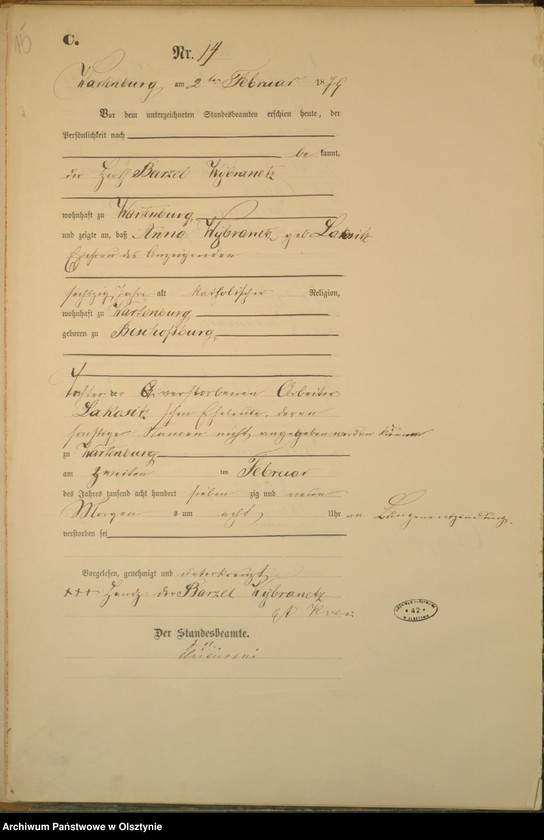 C.
Nr. 14
Wartenburg, am 2ten Februar 1879
Vor dem unterzeichneten Standesbeamten erschien heute, der
Persönlichkeit nach
be kannt,
der Barzel Wybranetz
wohnhaft zu Wartenburg
und zeigte an, daß Anna Wybranetz geb.
Ehefrau des Anzeigenden
sechszig Jahre alt katholischer Religion,
wohnhaft zu Wartenburg
geboren zu Bischofsburg
Tochter der verstorbenen Arbeiter
Lakositz schen Eheleute, deren
sonstige Namen nicht angegeben werden können
zu Wartenburg
am zweiten ten Februar
des Jahres tausend acht hundert sieben zig und neun
Morgen s um acht Uhr an Lungenentzündung.
verstorben sei
Vorgelesen, genehmigt und unterkreuzt
+++ Handz. des Barzel Wybranetz
Der Standesbeamte.
42
Archiwum Państwowe w Olsztynie